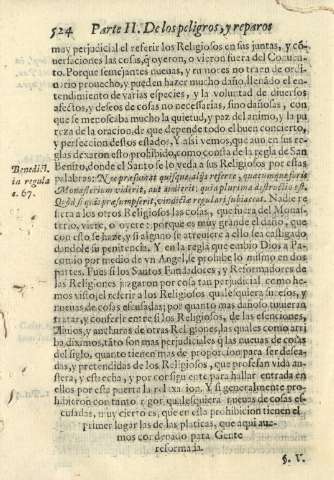 524 Parte II. De los peligros, y reparos
muy perjudicial el referir los Religiosos en sus juntas, y cõ-
versaciones las cosas, q̃ oyeron, o vieron fuera del Conuen-
to. Porque semejantes nuevas, y rumores no traen de ordi-
nario prouecho, y pueden hazer mucho daño, llenando el en-
tendimiento de varias especies, y la voluntad de diuersos
afectos, y deseos de cosas no necessarias, sino dañosas, con
que se menoscaba mucho la quietud, y paz del animo, y la pu-
reza de la oracion, de que depende todo el buen concierto,
y perfeccion destos estados. Y assi vemos, que aun en sus re-
glas dexaron esto prohibido, como consta de la regla de San
Benito, donde el Santo se lo veda a sus Religiosos por estas
Benedict.
in regula
c. 67.
palabras: Ne præsumat quisque alijs referre, quæcumque foris
Monasterium viderit, aut audierit: quia plurima destructio est.
Quod si quis præsumpserit, vindictæ regulari subiaceat. Nadie re-
fiera a los otros Religiosos las cosas, que fuera del Monas-
terio, viere, o oyere: porque es muy grande el daño, que
con esto se haze, y si alguno se atreuiere a ello sea castigado
dandole su penitencia. Y en la regla que embio Dios a Pa-
comio por medio de vn Angel, se prohibe lo mismo en dos
partes. Pues si los Santos Fundadores, y Reformadores de
las Religiones juzgaron por cosa tan perjudicial, como he-
mos visto, el referir a los Religiosos qualesquiera sucesos, y
nueuas de cosas escusadas; por quanto mas dañoso tuuieran
tratar, y conferir entre si los Religiosos, de las esenciones,
Aliuios, y anchuras de otras Religiones, las quales como arri-
ba diximos, tãto son mas perjudiciales q̃ las nueuas de cosas
del siglo, quanto tienen mas de proporcion para ser desea-
das, y pretendidas de los Religiosos, que profesan vida aus-
tera, y estrecha, y por consiguiente para hallar entrada en
ellos por esta puerta la relaxacion. Y si generalmente pro-
hibieron con tanto rigor qualesquiera nueuas de cosas es-
cusadas, muy cierto es, que en esta prohibicion tienen el
primer lugar las de las platicas, que aqui aue-
mos condenado para Gente
reformada.
§. V.